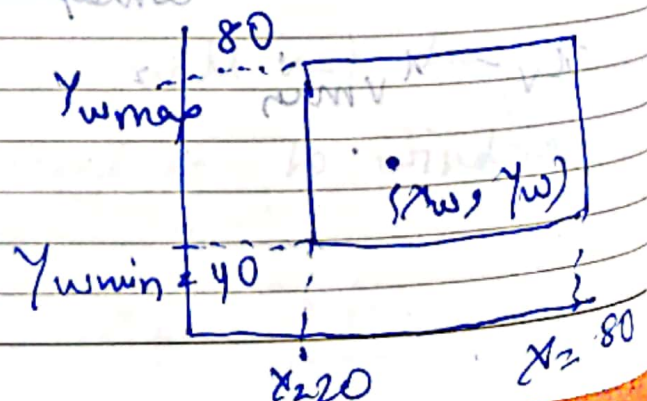 80
Ywmax
(xw, yw)
Ywmin = 40
x=20
x= 80